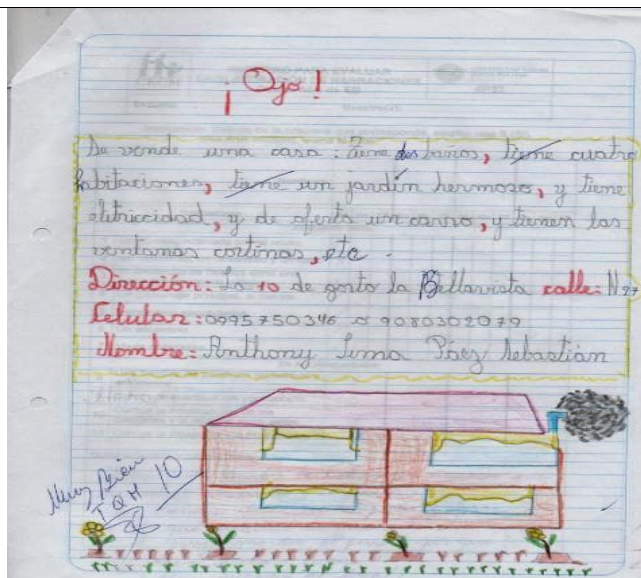 ¡Ojo!
Se vende una casa: Tiene dos baños, tiene cuatro
habitaciones, tiene un jardín hermoso, y tiene
elitricidad, y de oferta un carro, y tienen las
ventanas cortinas, etc.
Dirección: La 10 de gosto la Bellavista calle: N27
Celular: 0995750346 o 9080302079
Nombre: Anthony Lema Páez Sebastián
Muy Bien 10
TQM